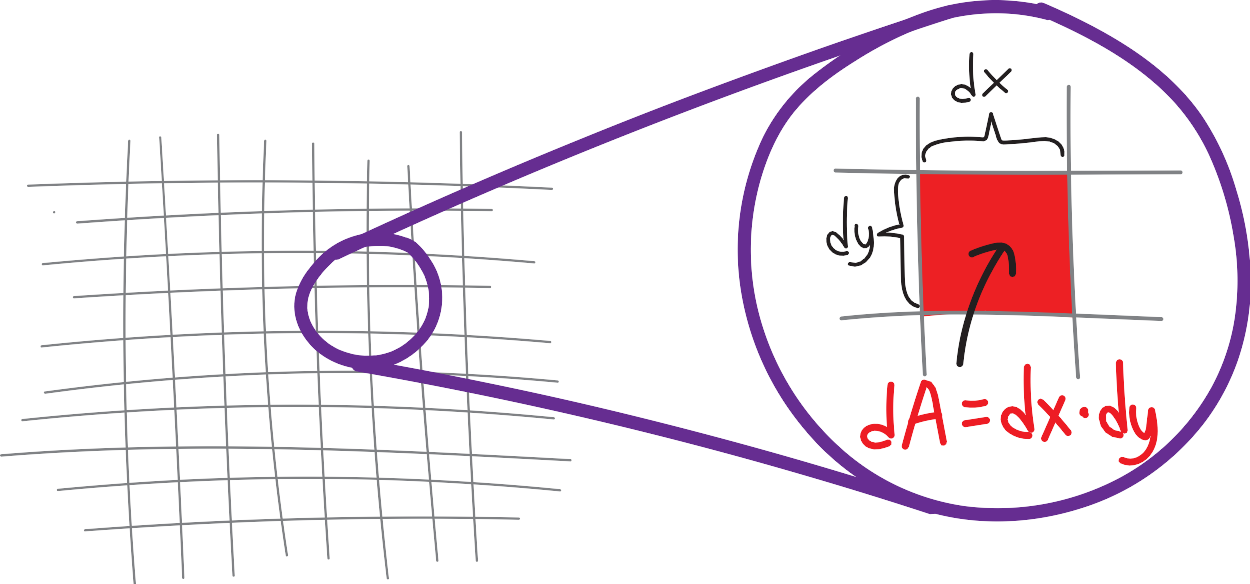 dx
dy
dA=dx·dy